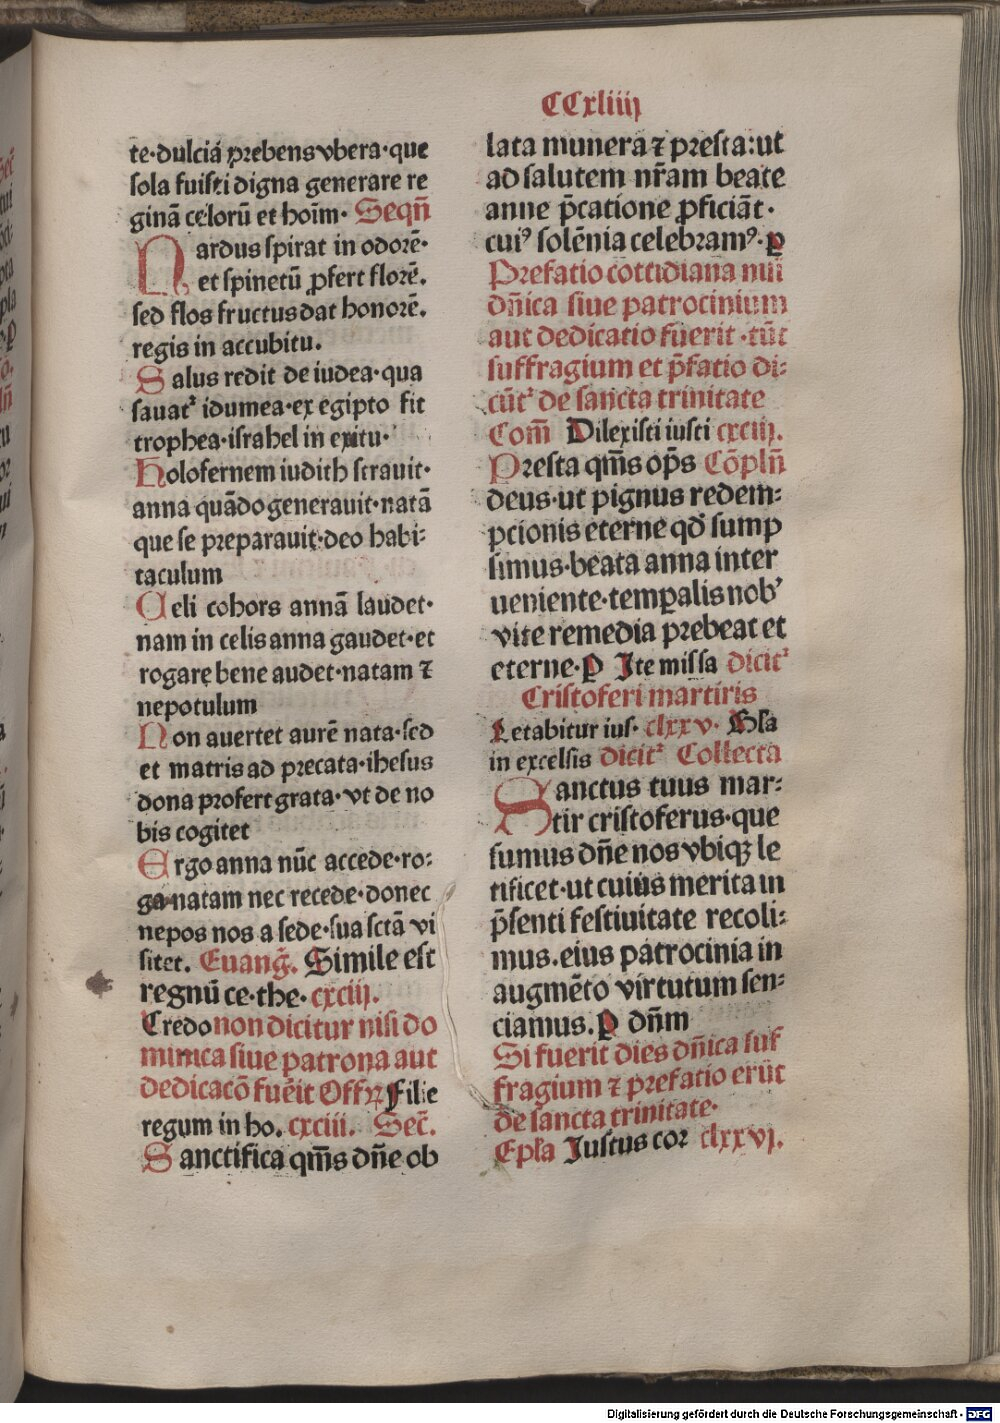 CCxliiij
te·dulciā prebens vbera·que
sola fuisti digna generare re
ginā celorū et hoīm· Seqñ
Nardus spirat in odorē·
et spinetū ꝓfert florē.
sed flos fructus dat honorē.
regis in accubitu.
Salus redit de iudea·qua
sauatꝰ idumea·ex egipto fit
trophea·israhel in exitu·
Holofernem iudith strauit·
anna quādo generauit·natā
que se preparauit·deo habi⸗
taculum
Celi cohors annā laudet·
nam in celis anna gaudet·et
rogare bene audet·natam ⁊
nepotulum
Non auertet aurē nata·sed
et matris ad precata·ihesus
dona profert grata·vt de no
bis cogitet
Ergo anna nūc accede·ro⸗
ga natam nec recede·donec
nepos nos a sede·sua sctā vi
sitet. Euang̃. Simile est
regnū ce·the· cxciij.
Credo non dicitur nisi do
minica siue patrona aut
dedicacō fuēit Offꝝ Filie
regum in ho. cxciii. Sec̄.
Sanctifica qm̄s dn̄e ob
lata munera ⁊ presta:ut
ad salutem nr̄am beate
anne p̄catione ꝓficiāt·
cuiꝰ solēnia celebramꝰ·p
Prefatio cottidiana nisi
dn̄ica siue patrocinium
aut dedicatio fuerit·tūt
suffragium et p̄fatio di⸗
cūtꝰ de sancta trinitate
Com̄ Dilexisti iusti cxciij.
Presta qm̄s op̄s Cōplñ
deus·ut pignus redem⸗
pcionis eterne qd̄ sump
simus·beata anna inter
ueniente·temꝑalis nobꝰ
vite remedia prebeat et
eterne·P Ite missa dicitꝰ
Cristoferi martiris
Letabitur ius· clxxv· Gl̄a
in excelsis dicitꝰ Collecta
Sanctus tuus mar⸗
tir cristoferus·que
sumus dn̄e nos vbiqꝫ le
tificet·ut cuius merita in
p̄senti festiuitate recoli⸗
mus.eius patrocinia in
augmēto virtutum sen⸗
ciamus.P dn̄m
Si fuerit dies dn̄ica suf
fragium ⁊ prefatio erūt
de sancta trinitate·
Epl̄a Iustus cor clxxvj.
Digitalisierung gefördert durch die Deutsche Forschungsgemeinschaft - DFG